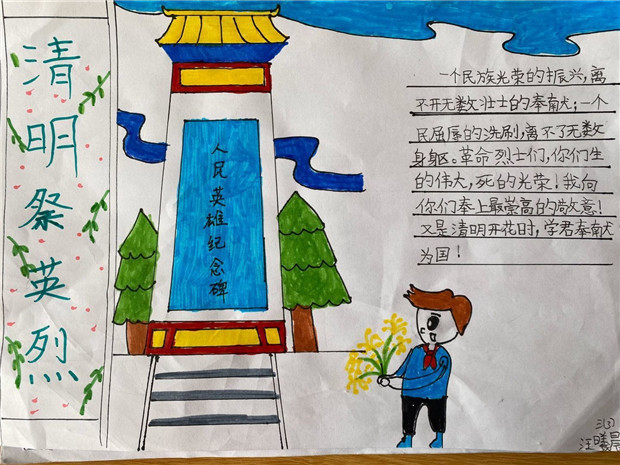 清明祭英烈
人民英雄纪念碑
一个民族光荣的振兴，离
不开无数壮士的奉献；一个
民屈辱的洗刷，离不了无数
身躯。革命烈士们，你们生
的伟大，死的光荣！我向
你们奉上最崇高的敬意！
又是清明开花时，学君奉献
为国！
汪曦晨